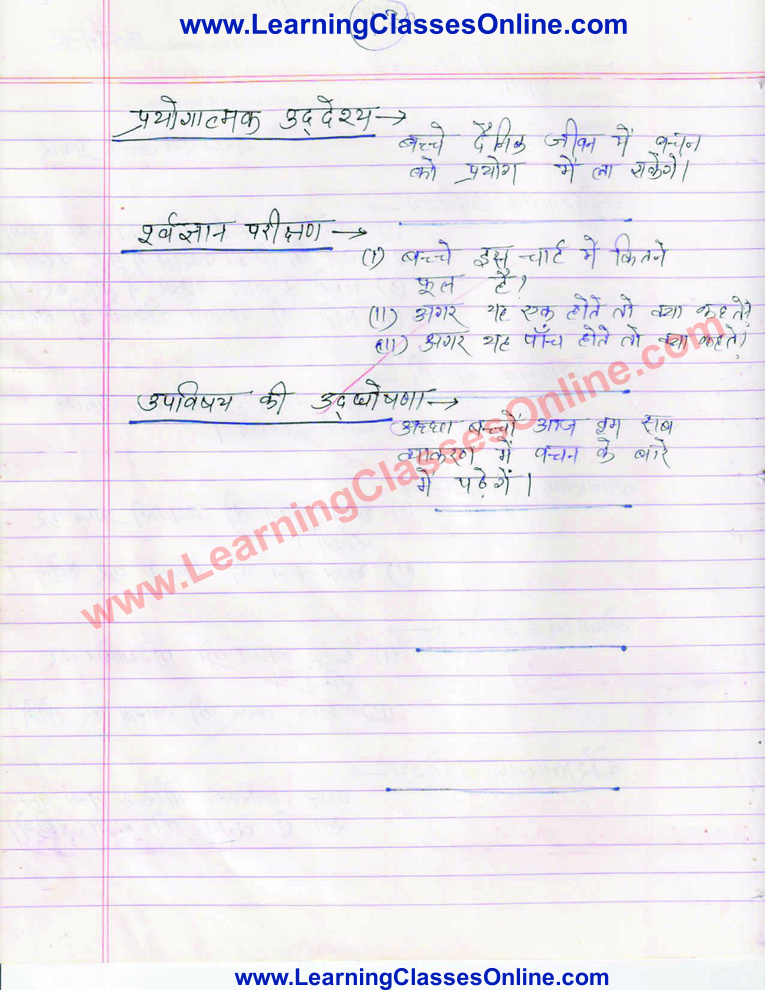 www.LearningClassesOnline.com
प्रयोगात्मक उद्देश्य→
बच्चे दैनिक जीवन में वचन
को प्रयोग में ला सकेंगे।
पूर्वज्ञान परीक्षण→
(I) बच्चे इस चार्ट में कितने
फूल है?
(II) अगर यह एक होते तो क्या कहते?
(III) अगर यह पाँच होते तो क्या कहते।
उपविषय की उद्घोषणा→
अच्छा बच्चों आज हम सब
व्याकरण में वचन के बारे
में पढ़ेगें।
www.LearningClassesOnline.com
www.LearningClassesOnline.com